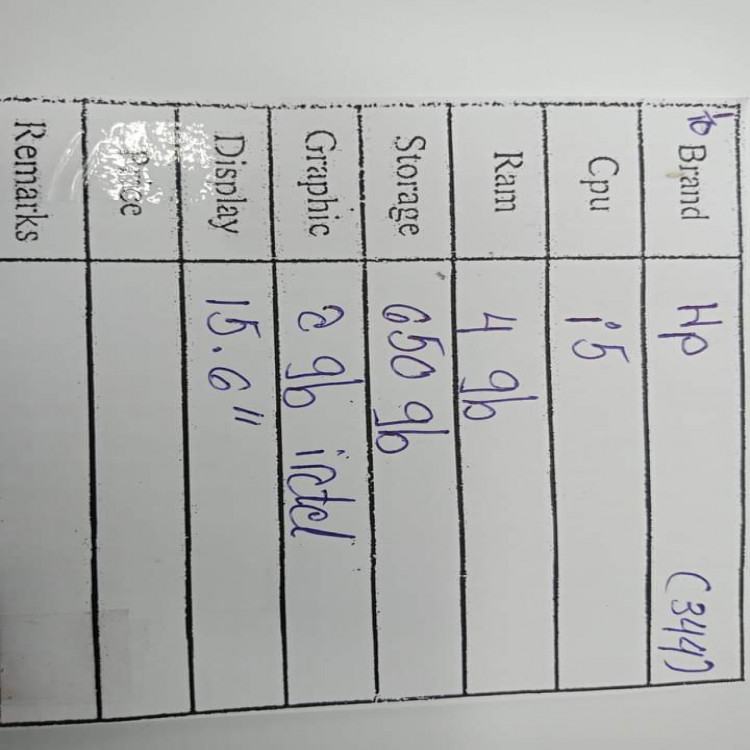 Brand Hp (344)
Cpu i5
Ram 4 gb
Storage 650 gb
Graphic 2 gb intel
Display 15.6"
Price
Remarks